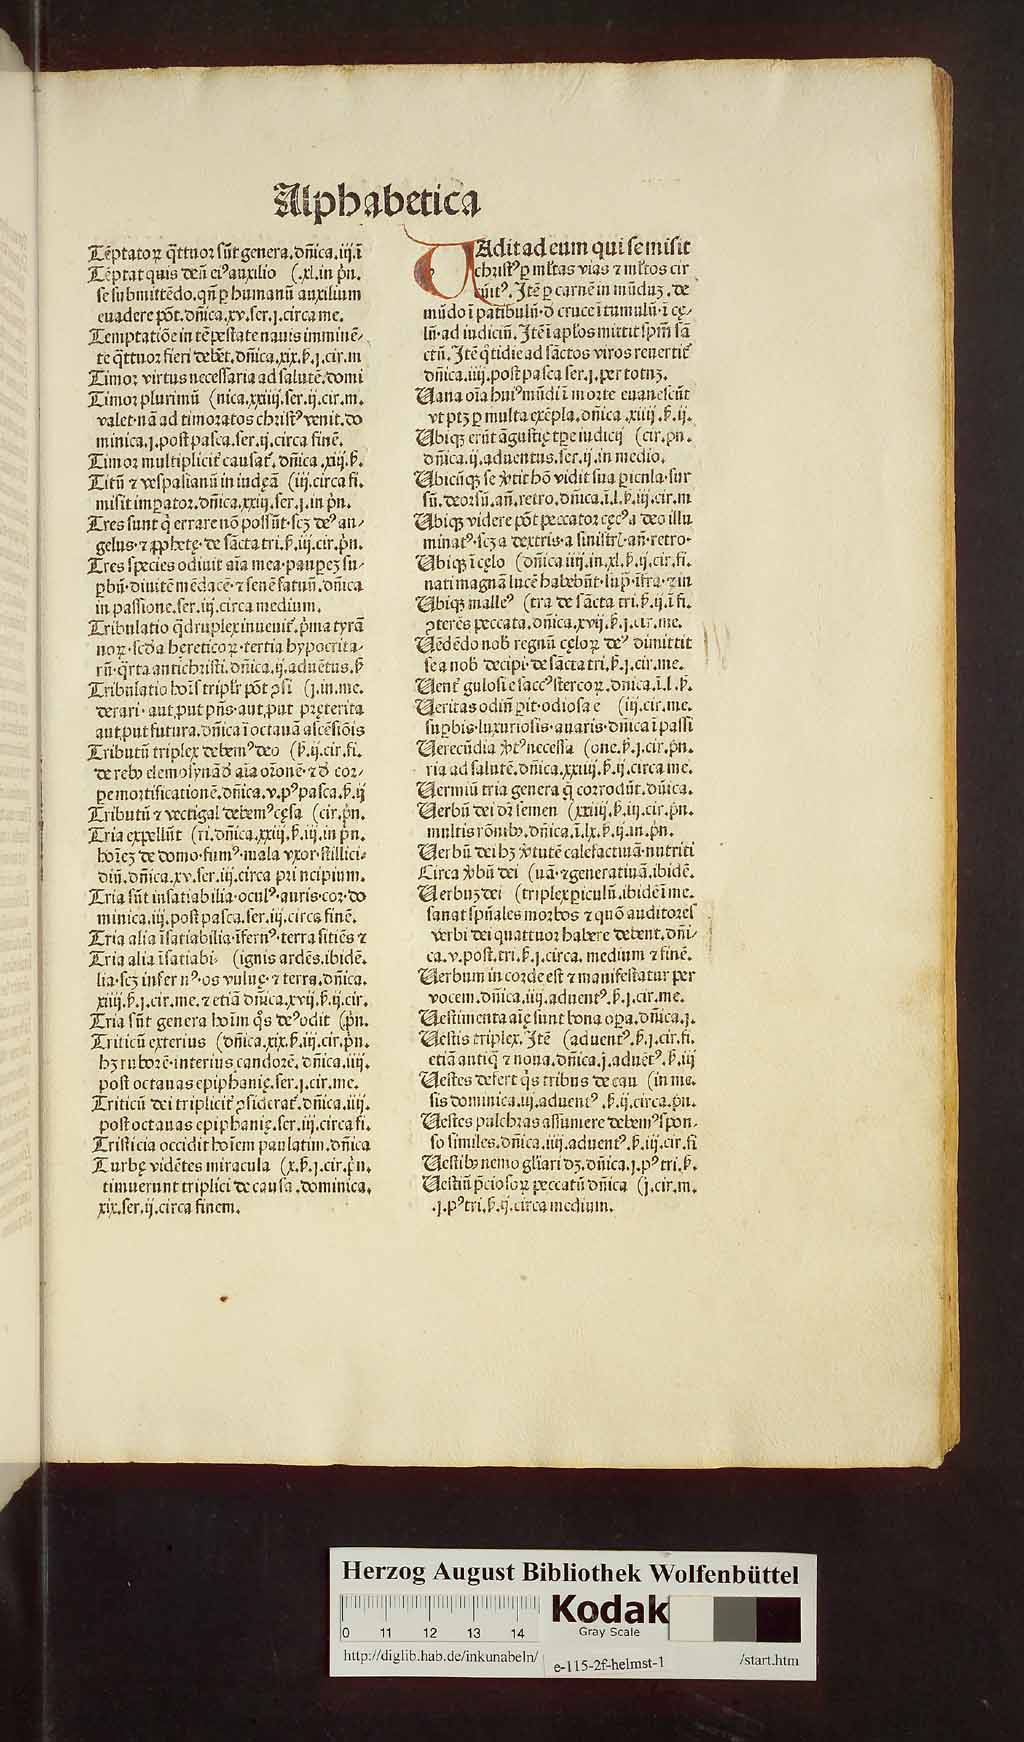 Alphabetica
Tẽptatoꝝ q̃ttuor sũt genera.dñica.iij.ĩ
Tẽptat quis deũ eiꝰ auxilio (.xl.in p̃n.
se submittẽdo.qñ ꝑ humanũ auxilium
euadere põt.dñica.xv.ser.j.circa me.
Temptatiõe in tẽpestate nauis imminẽ-
te q̃ttuor fieri debẽt.dñica.xix.ẜ.j.cir.m
Timor virtus necessaria ad salutẽ.domi
Timor plurimũ (nica.xxiiij.ser.ij.cir.m.
valet.nã ad timoratos christꝰ venit.do
minica.j.post pasca.ser.ij.circa finẽ.
Timor multiplicit̃ causat̃.dñica.xij.ẜ.
Titũ ⁊ vespasianũ in iudęã (iij.circa fi.
misit imꝑator.dñica.xxiij.ser.j.in p̃n.
Tres sunt q̃ errare nõ possũt.scꝫ deꝰ an-
gelus.⁊ ꝓphetę.de sãcta tri.ẜ.iij.cir.p̃n.
Tres species odiuit aĩa mea.pauꝑeꝫ su-
ꝑbũ.diuitẽ mẽdacẽ.⁊ senẽ fatuũ.dñica
in passione.ser.iij.circa medium.
Tribulatio q̃druplex inuenit̃.p̃ma tyrã
noꝝ.scd̃a hereticoꝝ.tertia hypocrita-
rũ.q̃rta antichristi.dñica.ij.aduẽtus.ẜ
Tribulatio hoĩs triplr̃ põt ꝯsi (j.in.me.
derari.aut,put pñs.aut,put pręterita
aut,put futura.dñica ĩ octauã ascẽsiõis
Tributũ triplex debemꝰ deo (ẜ.ij.cir.fi.
de rebꝰ elemosynã.đ aĩa or̃onẽ.⁊ đ cor-
ꝑe mortificationẽ.dñica.v.pꝰ pasca.ẜ.ij
Tributũ ⁊ vectigal debemꝰ cęsa (cir.p̃n.
Tria expellũt (ri.dñica.xxiij.ẜ.iij.in p̃n.
hoĩeꝫ de domo.fumꝰ.mala vxor.stillici-
diũ.dñica.xv.ser.iij.circa principium.
Tria sũt insatiabilia.oculꝰ.auris.cor.do
minica.iij.post pasca.ser.iij.circa finẽ.
Tria alia ĩsatiabilia.ĩfernꝰ.terra sitiẽs ⁊
Tria alia ĩsatiabi- (ignis ardẽs.ibidẽ.
lia.scꝫ infernꝰ.os vuluę.⁊ terra.dñica.
xiiij.ẜ.j.cir.me.⁊ etiã dñica.xvij.ẜ.ij.cir.
Tria sũt genera hoĩm q̃s deꝰ odit (p̃n.
Triticũ exterius (dñica.xix.ẜ.iij.cir.p̃n.
hꝫ ruborẽ.interius candorẽ.dñica.iiij.
post octauas epiphanię.ser.j.cir.me.
Triticũ dei triplicit̃ ꝯsiderat̃.dñica.iiij.
post octauas epiphanię.ser.iij.circa fi.
Tristicia occidit hoĩem paulatim.dñica
Turbę vidẽtes miracula (x.ẜ.j.cir.p̃n.
timuerunt triplici de causa.dominica.
xix.ser.ij.circa finem.
UAdit ad eum qui se misit
christꝰ ꝑ ml̃tas vias ⁊ ml̃tos cir
cũitꝰ. Itẽ ꝑ carnẽ in mũduꝫ. de
mũdo ĩ patibulũ.đ cruce ĩ tumulũ.ĩ cę-
lũ.ad iudiciũ. Itẽ ĩ apl̃os mittit sp̃m sã
ctũ. Itẽ q̃tidie ad sãctos viros reuertit̃
dñica.iiij.post pasca ser.j.per totuꝫ.
Uana oĩa huiꝰ mũdi ĩ morte euanescũt
vt ptꝫ ꝑ multa exẽpla.dñica.xiiij.ẜ.ij.
Ubiqꝫ erũt ãgustię tꝑe iudicij (cir.p̃n.
dñica.ij.aduentus.ser.ij.in medio.
Ubicũqꝫ se v̾tit hõ vidit sua ꝑicula.sur
sũ.deorsũ.añ.retro.dñica.ĩ.l.ẜ.iij.cir.m
Ubiqꝫ videre põt peccator cęcꝰ a deo illu
minatꝰ.scꝫ a dextris.a sinistri.̃añ.retro.
Ubiqꝫ ĩ cęlo (dñica iiij.in.xl.ẜ.ij.cir.fi.
nati magnã lucẽ habebũt.sup̃.ĩfra.⁊ in
Ubiqꝫ malleꝰ (tra de sãcta tri.ẜ.ij.ĩ fi.
ꝯterẽs peccata.dñica.xvij.ẜ.j.cir.me.
Uẽdẽdo nob̃ regnũ cęloꝝ deꝰ dimittit
se a nob̃ decipi.de sãcta tri.ẜ.j.cir.me.
Uent̃ gulosi ẽ saccꝰ stercoꝝ.dñica.ĩ.l.ẜ.
Ueritas odiũ ꝑit.odiosa e (iij.cir.me.
suꝑbis.luxuriosis.auaris.dñica ĩ passi
Uerecũdia v̾tꝰ necessa (one.ẜ.j.cir.p̃n.
ria ad salutẽ.dñica.xxiiij.ẜ.ij.circa me.
Uermiũ tria genera q̃ corrodũt.dñica.
Uerbũ dei dr̃ semen (xxiiij.ẜ.iij.cir.p̃n.
multis rõnibꝰ.dñica.ĩ.lx.ẜ.ij.in.p̃n.
Uerbũ dei hꝫ v̾tutẽ calefactiuã.nutriti
Circa v̾bũ dei (uã.⁊generatiuã.ibidẽ.
Uerbuꝫ dei (triplex ꝑiculũ.ibidẽ ĩ me.
sanat spũales morbos ⁊ quõ auditores
verbi dei quattuor habere debent.dñi-
ca.v.post.tri.ẜ.j.circa.medium ⁊ finẽ.
Uerbum in corde est ⁊ manifestatur per
vocem.dñica.iiij.aduentꝰ.ẜ.j.cir.me.
Uestimenta aĩę sunt bona oꝑa.dñica.j.
Uestis triplex. Itẽ (aduentꝰ.ẜ.j.cir.fi.
etiã antiq̃ ⁊ noua.dñica.j.aduẽtꝰ.ẜ.iij
Uestes defert q̃s tribus de cau (in me.
sis dominica.iij.aduentꝰ.ẜ.ij.circa.p̃n.
Uestes pulchras assumere debemꝰ spon-
so similes.dñica.iiij.aduentꝰ.ẜ.iij.cir.fi
Uestibꝰ nemo gl̃iari dꝫ.dñica.j.pꝰ tri.ẜ.
Uestiũ p̃ciosoꝝ peccatũ dñica (j.cir.m.
.j.pꝰ tri.ẜ.ij.circa medium.
Herzog August Bibliothek Wolfenbüttel
Kodak
Gray Scale
0 11 12 13 14
http://diglib.hab.de/inkunabeln/ e-115-2f-helmst-1 /start.htm